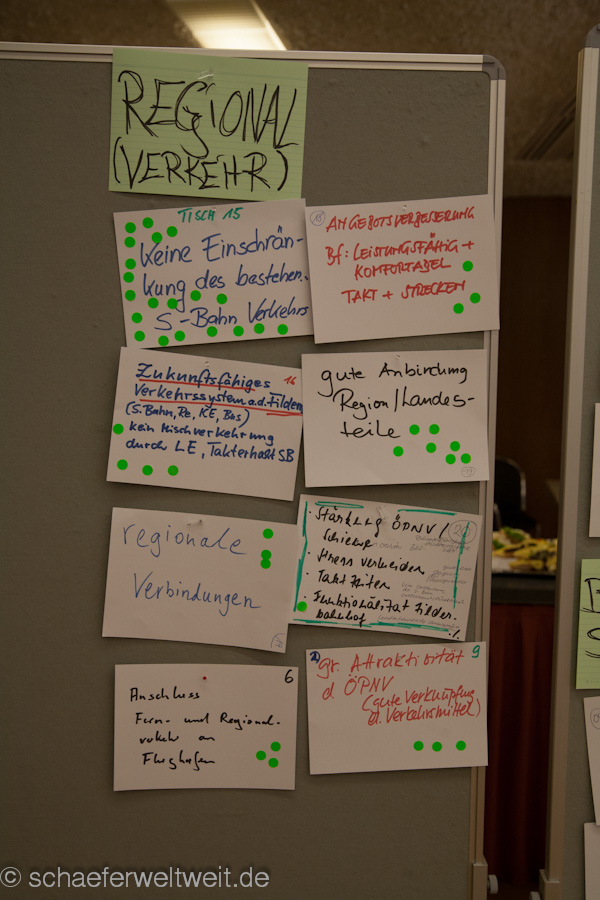 REGIONAL
(VERKEHR)
TISCH 15
Keine Einschrän-
kung des bestehen.
S-Bahn Verkehrs
ANGEBOTSVERBESSERUNG
Bf: LEISTUNGSFÄHIG +
KOMFORTABEL
TAKT + STRECKEN
Zukunftsfähiges 16
Verkehrssystem a.d. Fildern
(S.Bahn, Re, RE, Bus)
kein Mischverkehrung
durch LE, Takterhalt SB
gute Anbindung
Region/Landes-
teile
regionale
Verbindungen
· Stärkung ÖPNV/
Schiene
· Stress vermeiden
· Taktzeiten
· Funktionalität Filder-
bahnhof
6
Anschluss
Fern- und Regional-
verkehr an
Flughafen
9
gr. Attraktivität
d. ÖPNV
(gute Verknüpfung
d. Verkehrsmittel)
© schaeferweltweit.de